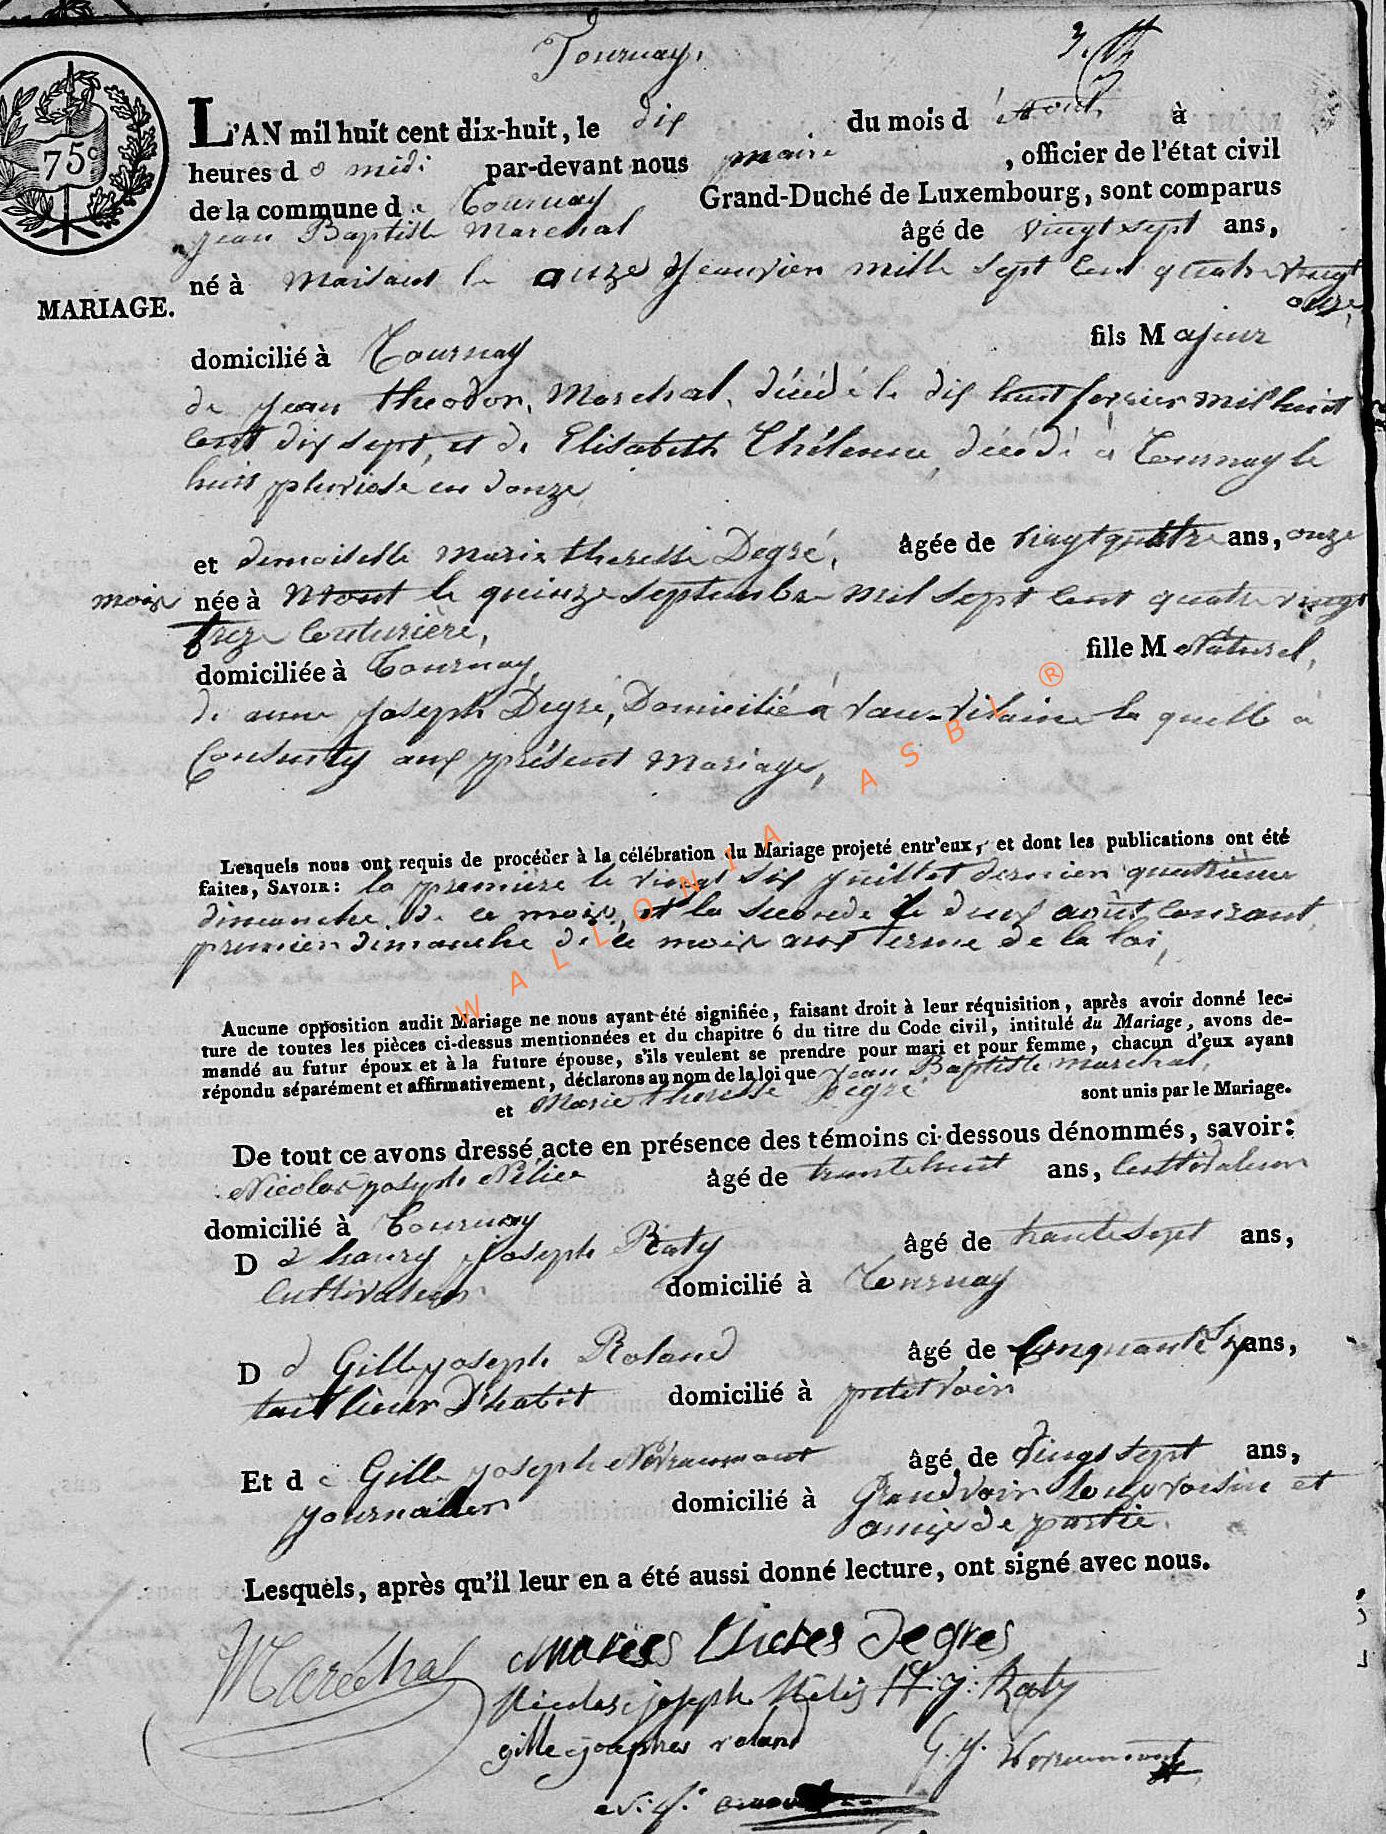 Tournay,
75c
L'AN mil huit cent dix-huit, le dix du mois d'Aout à
heures d midi par-devant nous maire , officier de l'état civil
de la commune de Tournay Grand-Duché de Luxembourg, sont comparus
jean Baptiste Marechal âgé de vingt sept ans,
né à Maisant le onze jeanvier mille sept cent quatre vingt
onze,
MARIAGE.
domicilié à Tournay fils Majeur
de jean theodor, Marechal, décédé le dix huit fevrier mil huit
cent dix sept, et de Elisabeth décédé à Tournay le
huit pluviose en douze
et demoiselle Marie theresse Degré, âgée de vingt quattre ans, onze
mois née à Mont le quinze septembre mil sept cent quatre vingt
treze couturière,
domiciliée à Tournay, fille M Naturel,
de anne joseph Degré, Domicilié à la quelle a
Consenty aux présent Mariage,
Lesquels nous ont requis de procéder à la célébration du Mariage projeté entr'eux, et dont les publications ont été
faites, SAVOIR: la première le vingt six juillet dernier quatrième
dimanche de ce mois, et la seconde le deux août courant,
premier dimanche de ce mois aux terme de la loi,
Aucune opposition audit Mariage ne nous ayant été signifiée, faisant droit à leur réquisition, après avoir donné lec-
ture de toutes les pièces ci-dessus mentionnées et du chapitre 6 du titre du Code civil, intitulé du Mariage, avons de-
mandé au futur époux et à la future épouse, s'ils veulent se prendre pour mari et pour femme, chacun d'eux ayant
répondu séparément et affirmativement, déclarons au nom de la loi que Jean Baptiste marechal,
et Marie theresse Degré sont unis par le Mariage.
De tout ce avons dressé acte en présence des témoins ci-dessous dénommés, savoir:
Nicolas joseph Nélis âgé de trente huit ans, cultivateur
domicilié à Tournay
D henry joseph Raty âgé de trante sept ans,
cultivateur domicilié à Tournay
D Gille joseph Roland âgé de Cinquante ans,
taillieur D'habit domicilié à petitvoir
Et de Gille joseph Névraumont âgé de vingt sept ans,
journallier domicilié à Grandvoir tous voisin et
amis de partie.
Lesquels, après qu'il leur en a été aussi donné lecture, ont signé avec nous.
Maréchal
Degres
Nicolas joseph Nélis H: j: Raty
gille joseph roland
G. J. Nevraumont
WALLONIA ASBL ®